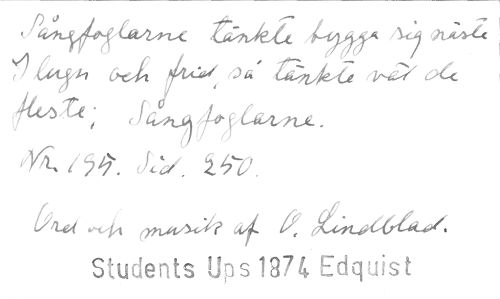 Sångfoglarne tänkte bygga sig näste
I lugn och frid, så tänkte väl de
fleste; Sångfoglarne.
Nr. 195. Sid. 250.
Ord och musik af O. Lindblad.
Students Ups 1874 Edquist